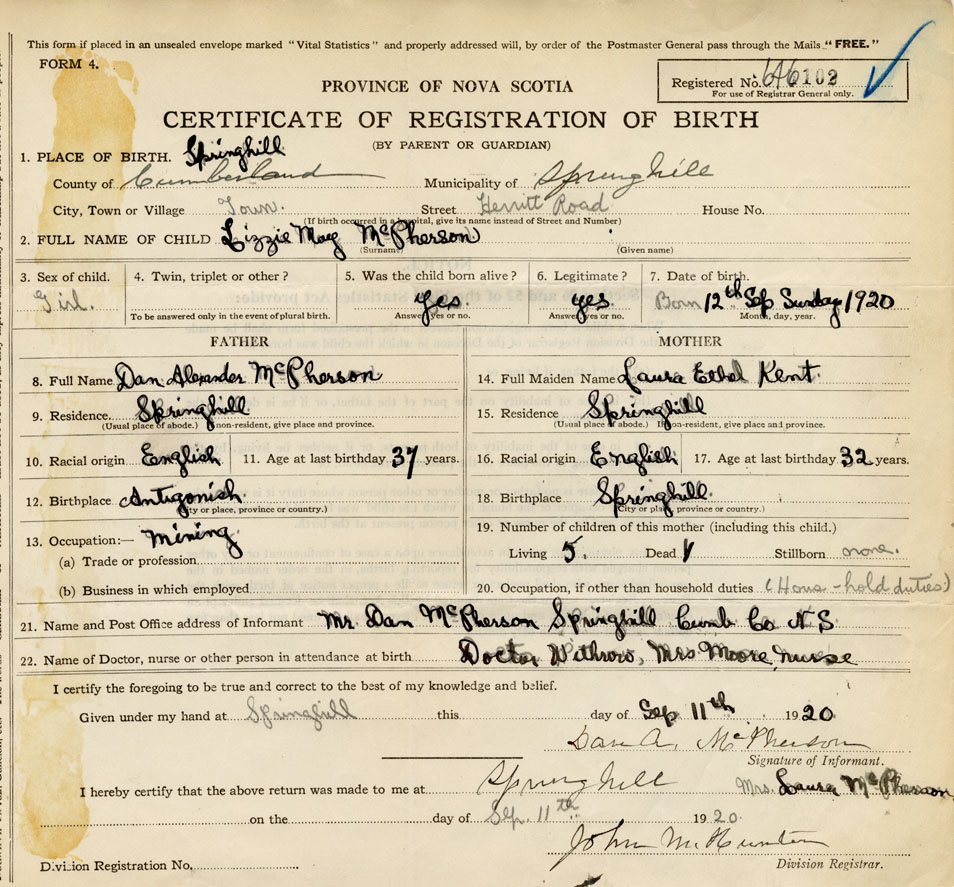 This form if placed in an unsealed envelope marked "Vital Statistics" and properly addressed will, by order of the Postmaster General pass through the Mails "FREE."
FORM 4.
Registered No. 102
For use of Registrar General only.
PROVINCE OF NOVA SCOTIA
CERTIFICATE OF REGISTRATION OF BIRTH
(BY PARENT OR GUARDIAN)
1. PLACE OF BIRTH. Springhill
County of Cumberland Municipality of Springhill
City, Town or Village Town. Street Herritt Road House No.
(If birth occurred in a hospital, give its name instead of Street and Number)
2. FULL NAME OF CHILD Lizzie May McPherson
(Surname) (Given name)
3. Sex of child. 4. Twin, triplet or other? 5. Was the child born alive? 6. Legitimate? 7. Date of birth.
Girl. yes. yes Born 12th Sep Sunday 1920
To be answered only in the event of plural birth. Answer yes or no. Answer yes or no. Month, day, year.
FATHER
8. Full Name Dan Alexander McPherson
9. Residence Springhill
(Usual place of abode.) If non-resident, give place and province.
10. Racial origin English 11. Age at last birthday 37 years.
12. Birthplace Antigonish
(City or place, province or country.)
13. Occupation:— mining
(a) Trade or profession
(b) Business in which employed
MOTHER
14. Full Maiden Name Laura Ethel Kent
15. Residence Springhill
(Usual place of abode.) If non-resident, give place and province.
16. Racial origin English 17. Age at last birthday 32 years.
18. Birthplace Springhill
(City or place, province or country.)
19. Number of children of this mother (including this child.)
Living 5. Dead 1 Stillborn none.
20. Occupation, if other than household duties (House-hold duties)
21. Name and Post Office address of Informant Mr. Dan McPherson Springhill Cumb Co N S
22. Name of Doctor, nurse or other person in attendance at birth Doctor Withrow, Mrs Moore, nurse
I certify the foregoing to be true and correct to the best of my knowledge and belief.
Given under my hand at Springhill this day of Sep 11th 1920
Dan A. McPherson
Signature of Informant.
I hereby certify that the above return was made to me at Springhill Mrs. Laura McPherson
on the day of Sep. 11th 1920.
John M. Hunter
Division Registration No. Division Registrar.